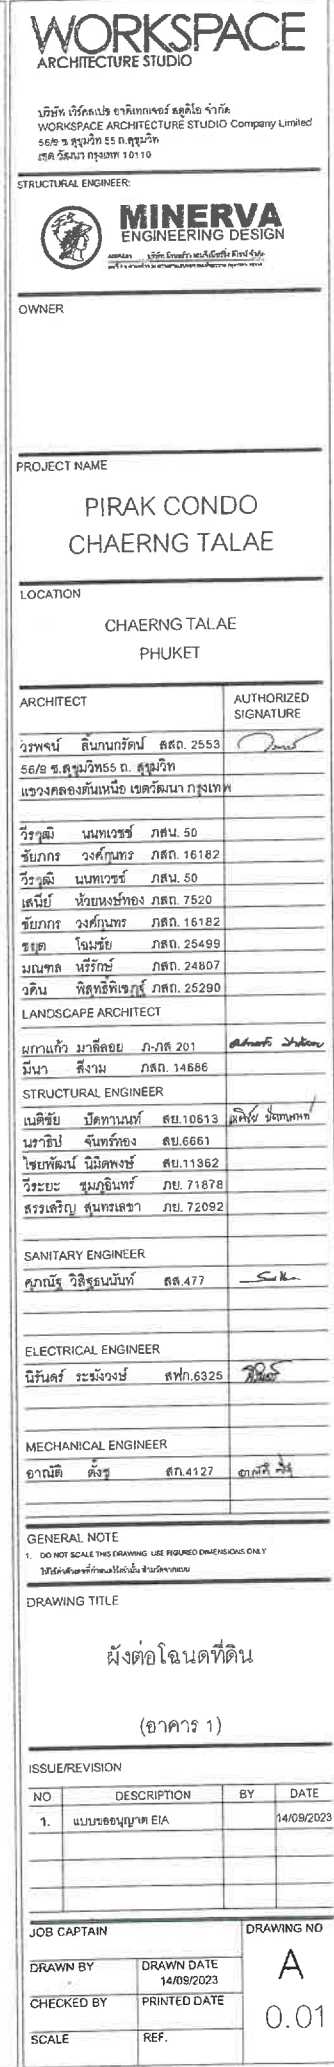 WORKSPACE
ARCHITECTURE STUDIO
บริษัท เวิร์คสเปซ อาคิเทกเจอร์ สตูดิโอ จำกัด
WORKSPACE ARCHITECTURE STUDIO Company Limited
56/9 ซ.สุขุมวิท 55 ถ.สุขุมวิท
เขต วัฒนา กรุงเทพ 10110
STRUCTURAL ENGINEER:
MINERVA
ENGINEERING DESIGN
OWNER
PROJECT NAME
PIRAK CONDO
CHAERNG TALAE
LOCATION
CHAERNG TALAE
PHUKET
ARCHITECT AUTHORIZED SIGNATURE
วรพจน์ ลิ้นกนกรัตน์ สสถ. 2553
56/9 ซ.สุขุมวิท55 ถ. สุขุมวิท
แขวงคลองตันเหนือ เขตวัฒนา กรุงเทพ
วีรวุฒิ นนทเวชช์ ภสน. 50
ชัยภกร วงศ์กุนทร ภสถ. 16182
วีรวุฒิ นนทเวชช์ ภสน. 50
เสนีย์ ห้วยหงษ์ทอง ภสถ. 7520
ชัยภกร วงศ์กุนทร ภสถ. 16182
โฉมชัย ภสถ. 25499
มณฑล หรีรักษ์ ภสถ. 24807
วศิน ภสถ. 25290
LANDSCAPE ARCHITECT
ผกาแก้ว มาลีลอย ภ-ภส 201
มีนา สีงาม ภสถ. 14686
STRUCTURAL ENGINEER
เนติชัย ปัดทานนท์ สย.10613
นราธิป จันทร์ทอง สย.6661
ไชยพัฒน์ นิมิตพงษ์ สย.11362
วีระยะ ชุมภูอินทร์ ภย. 71878
สรรเสริญ สุนทรเลขา ภย. 72092
SANITARY ENGINEER
ศุภณัฐ วิสิฐธนนันท์ สส.477
ELECTRICAL ENGINEER
นิรันดร์ ระฆังวงษ์ สฟก.6325
MECHANICAL ENGINEER
อาณัติ ตั้งชู สก.4127
GENERAL NOTE
1. DO NOT SCALE THIS DRAWING. USE FIGURED DIMENSIONS ONLY
DRAWING TITLE
ผังต่อโฉนดที่ดิน
(อาคาร 1)
ISSUE/REVISION
NO DESCRIPTION BY DATE
1. แบบขออนุญาต EIA 14/09/2023
JOB CAPTAIN DRAWING NO
DRAWN BY DRAWN DATE
14/09/2023
A
CHECKED BY PRINTED DATE
0.01
SCALE REF.